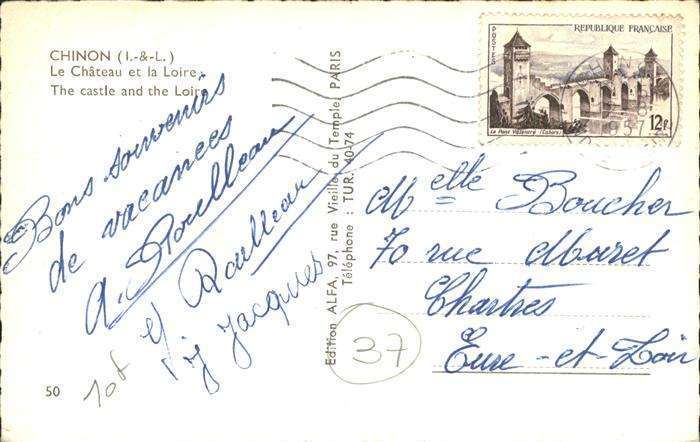 CHINON (I.-&-L.)
Le Château et la Loire
The castle and the Loire
Bons souvenirs
de vacances
A. Roulleau
Roulleau
Jacques
50
10f
Edition ALFA, 97, rue Vieille du Temple, PARIS
Téléphone : TUR. 40-74
37
POSTES
REPUBLIQUE FRANÇAISE
Le Pont Valentré (Cahors)
12F.
1957
Melle Boucher
70 rue Muret
Chartres
Eure-et-Loir